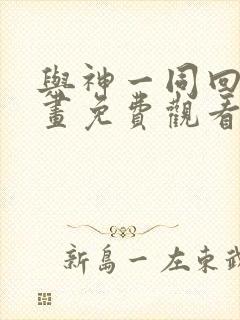 與神一同回
畫免費觀看
新島一左東武